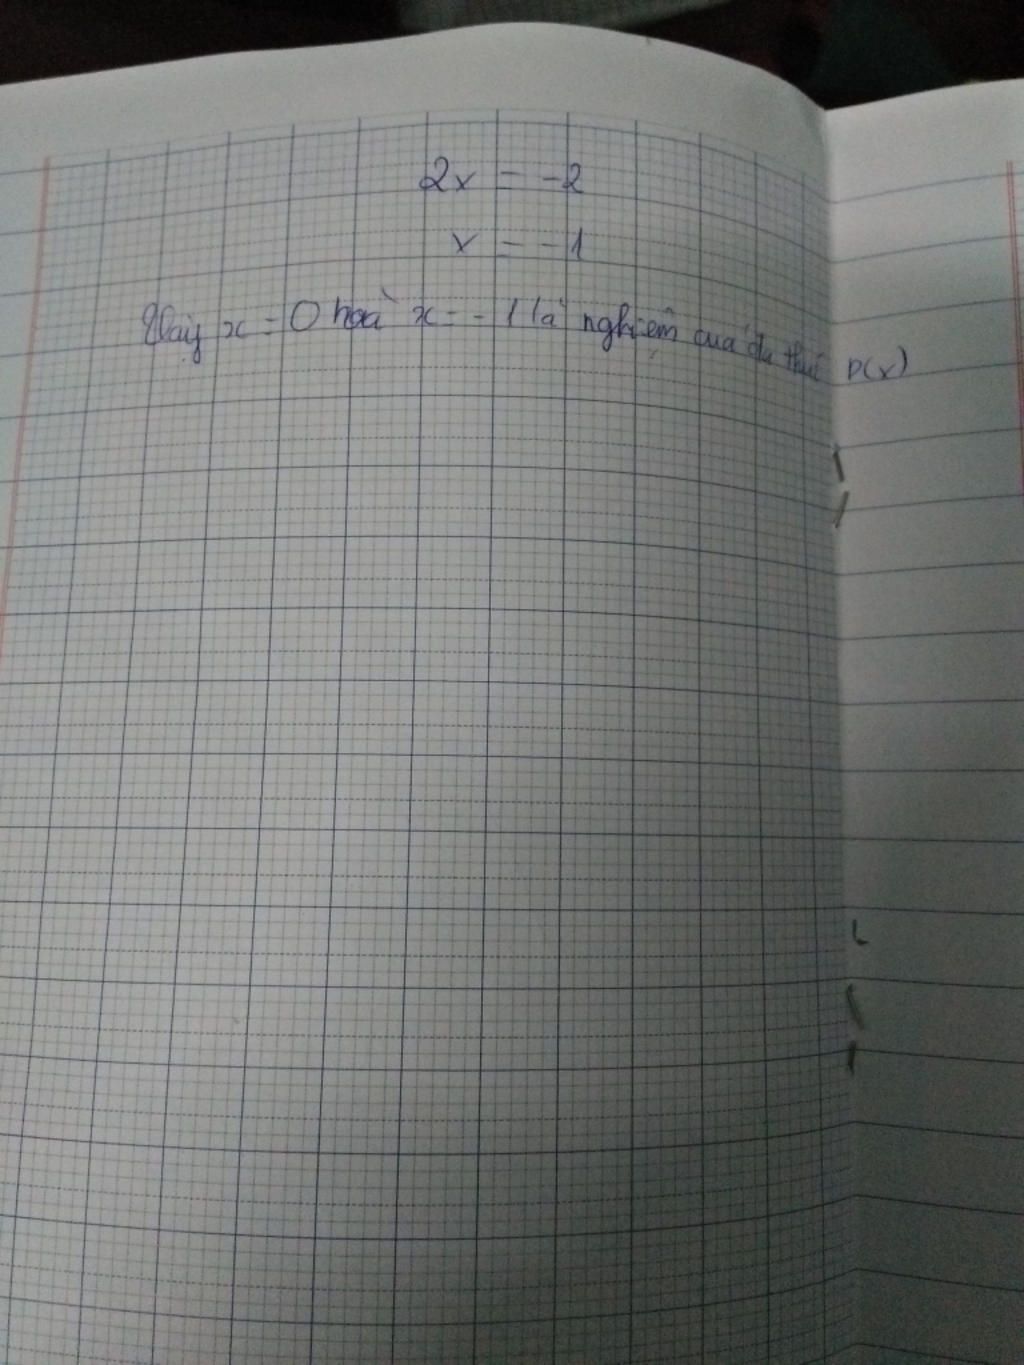 2x = -2
x = -1
Vậy x = 0 hoặc x = -1 là nghiệm của đa thức P(x)